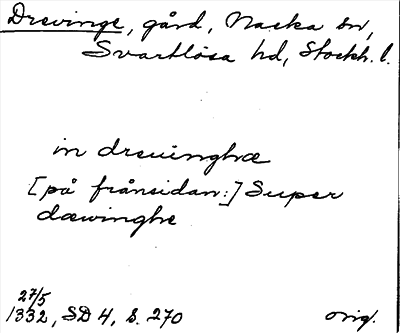 Drevinge, gård, Nacka sn,
Svartlösa hd, Stockh. l.
in dreuinghæ
[på frånsidan:] Super
dæwinghe
27/5
1332, SD 4, S. 270 orig.